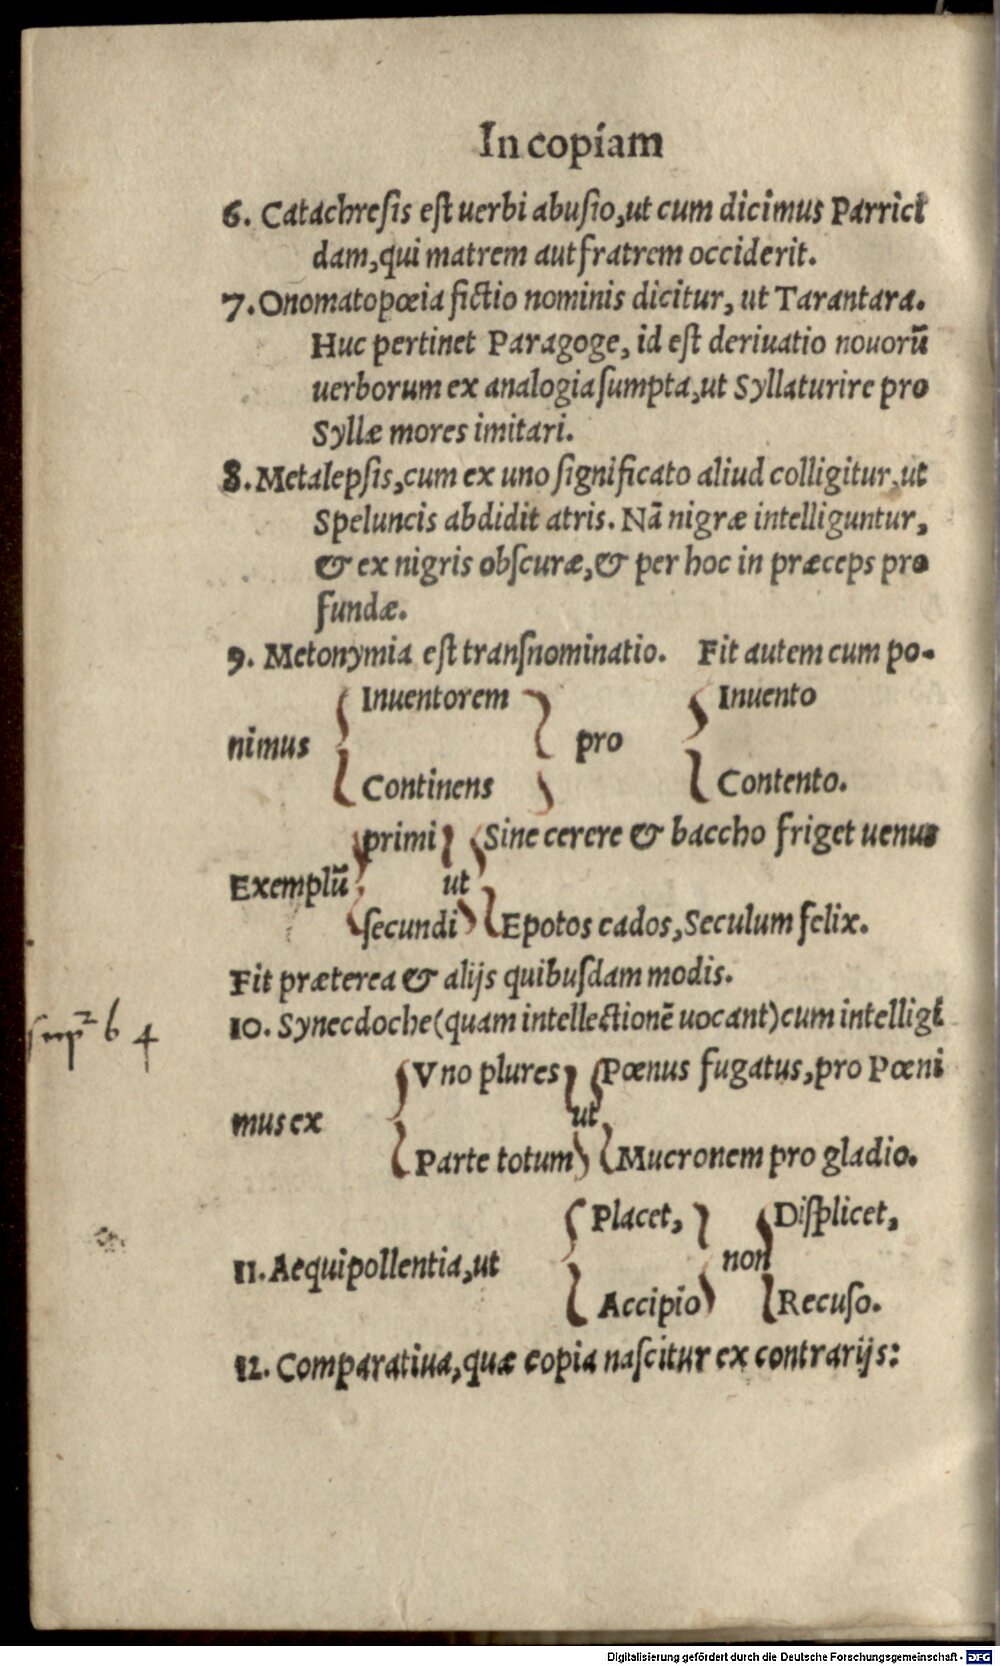 In copiam
6. Catachresis est uerbi abusio, ut cum dicimus Parrici
dam, qui matrem aut fratrem occiderit.
7. Onomatopœia fictio nominis dicitur, ut Tarantara.
Huc pertinet Paragoge, id est deriuatio nouorū
uerborum ex analogia sumpta, ut Syllaturire pro
Syllæ mores imitari.
8. Metalepsis, cum ex uno significato aliud colligitur, ut
Speluncis abdidit atris. Nā nigræ intelliguntur,
& ex nigris obscuræ, & per hoc in præceps pro
fundæ.
9. Metonymia est transnominatio. Fit autem cum po-
Inuentorem Inuento
nimus pro
Continens Contento.
primi Sine cerere & baccho friget uenus
Exemplū ut
secundi Epotos cados, Seculum felix.
Fit præterea & alijs quibusdam modis.
10. Synecdoche (quam intellectionē uocant) cum intelligi
Vno plures Pœnus fugatus, pro Pœni
mus ex ut
Parte totum Mucronem pro gladio.
Placet, Displicet,
11. Aequipollentia, ut non
Accipio Recuso.
12. Comparatiua, quæ copia nascitur ex contrarijs:
6 4
Digitalisierung gefördert durch die Deutsche Forschungsgemeinschaft - DFG